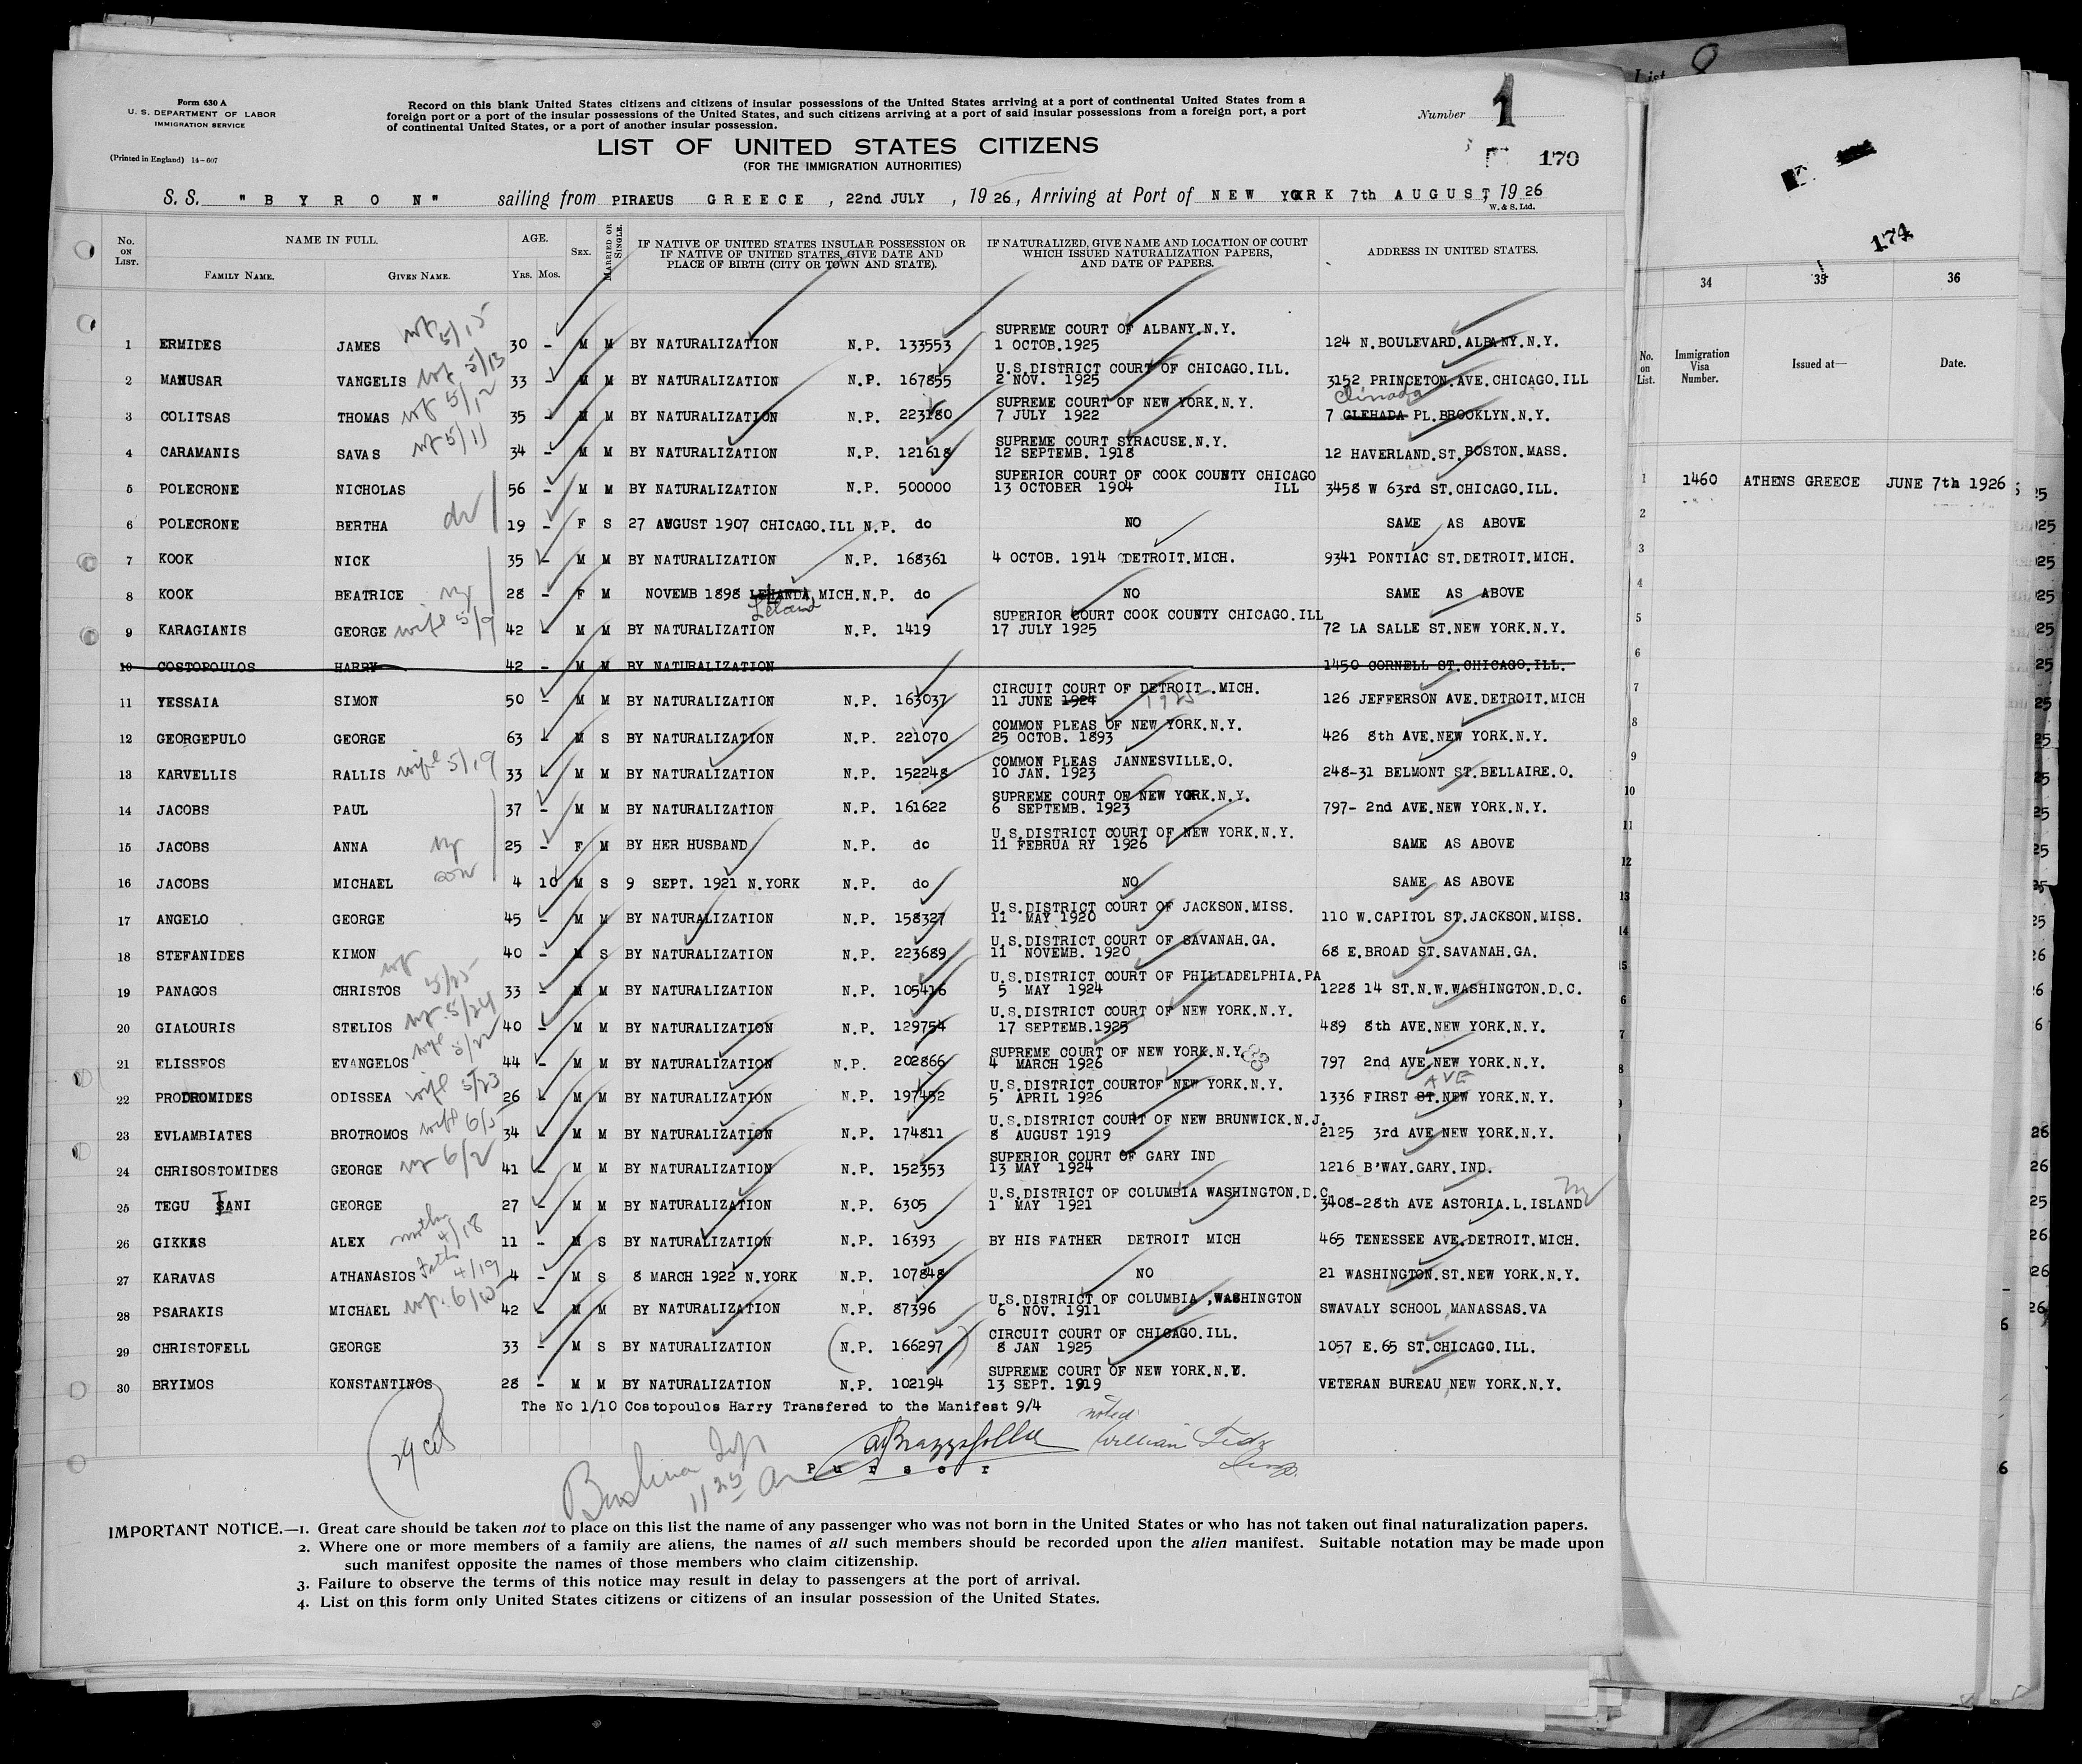 Form 630 A
U. S. DEPARTMENT OF LABOR
IMMIGRATION SERVICE
(Printed in England) 14-607
Record on this blank United States citizens and citizens of insular possessions of the United States arriving at a port of continental United States from a
foreign port or a port of the insular possessions of the United States, and such citizens arriving at a port of said insular possessions from a foreign port, a port
of continental United States, or a port of another insular possession.
Number 1
LIST OF UNITED STATES CITIZENS
(FOR THE IMMIGRATION AUTHORITIES)
170
S.S. "BYRON" sailing from PIRAEUS GREECE, 22nd JULY, 1926, Arriving at Port of NEW YORK 7th AUGUST, 1926
W. & S. Ltd.
No. ON LIST. NAME IN FULL. FAMILY NAME. GIVEN NAME. AGE. Yrs. Mos. SEX. MARRIED OR SINGLE. IF NATIVE OF UNITED STATES INSULAR POSSESSION OR IF NATIVE OF UNITED STATES, GIVE DATE AND PLACE OF BIRTH (CITY OR TOWN AND STATE). IF NATURALIZED, GIVE NAME AND LOCATION OF COURT WHICH ISSUED NATURALIZATION PAPERS, AND DATE OF PAPERS. ADDRESS IN UNITED STATES.
1 ERMIDES JAMES 5/15 30 - M M BY NATURALIZATION N.P. 133553 SUPREME COURT OF ALBANY.N.Y. 1 OCTOB.1925 124 N.BOULEVARD.ALBANY.N.Y.
2 MANUSAR VANGELIS 5/13 33 - M M BY NATURALIZATION N.P. 167855 U.S.DISTRICT COURT OF CHICAGO.ILL. 2 NOV. 1925 3152 PRINCETON.AVE.CHICAGO.ILL
3 COLITSAS THOMAS 5/12 35 - M M BY NATURALIZATION N.P. 223180 SUPREME COURT OF NEW YORK.N.Y. 7 JULY 1922 7 GLEHADA PL.BROOKLYN.N.Y.
4 CARAMANIS SAVAS 5/11 34 - M M BY NATURALIZATION N.P. 121618 SUPREME COURT SYRACUSE.N.Y. 12 SEPTEMB. 1918 12 HAVERLAND.ST.BOSTON.MASS.
5 POLECRONE NICHOLAS 56 - M M BY NATURALIZATION N.P. 500000 SUPERIOR COURT OF COOK COUNTY CHICAGO ILL 13 OCTOBER 1904 3458 W 63rd ST.CHICAGO.ILL.
6 POLECRONE BERTHA 19 - F S 27 AUGUST 1907 CHICAGO.ILL N.P. do NO SAME AS ABOVE
7 KOOK NICK 35 - M M BY NATURALIZATION N.P. 168361 4 OCTOB. 1914 DETROIT.MICH. 9341 PONTIAC ST.DETROIT.MICH.
8 KOOK BEATRICE 28 - F M NOVEMB 1898 LEHANDA MICH.N.P. do NO SAME AS ABOVE
Leland
9 KARAGIANIS GEORGE wife 5/9 42 - M M BY NATURALIZATION N.P. 1419 SUPERIOR COURT COOK COUNTY CHICAGO.ILL 17 JULY 1925 72 LA SALLE ST.NEW YORK.N.Y.
10 COSTOPOULOS HARRY 42 - M M BY NATURALIZATION 1450 CORNELL ST.CHICAGO.ILL.
11 YESSAIA SIMON 50 - M M BY NATURALIZATION N.P. 163037 CIRCUIT COURT OF DETROIT.MICH. 11 JUNE 1924 1925 126 JEFFERSON AVE.DETROIT.MICH
12 GEORGEPULO GEORGE 63 - M S BY NATURALIZATION N.P. 221070 COMMON PLEAS OF NEW YORK.N.Y. 25 OCTOB. 1893 426 8th AVE.NEW YORK.N.Y.
13 KARVELLIS RALLIS wife 5/19 33 - M M BY NATURALIZATION N.P. 152248 COMMON PLEAS JANNESVILLE.O. 10 JAN. 1923 248-31 BELMONT ST.BELLAIRE.O.
14 JACOBS PAUL 37 - M M BY NATURALIZATION N.P. 161622 SUPREME COURT OF NEW YORK.N.Y. 6 SEPTEMB. 1923 797- 2nd AVE.NEW YORK.N.Y.
15 JACOBS ANNA 25 - F M BY HER HUSBAND N.P. do U.S.DISTRICT COURT OF NEW YORK.N.Y. 11 FEBRUA RY 1926 SAME AS ABOVE
16 JACOBS MICHAEL son 4 10 M S 9 SEPT. 1921 N.YORK N.P. do NO SAME AS ABOVE
17 ANGELO GEORGE 45 - M M BY NATURALIZATION N.P. 158327 U.S.DISTRICT COURT OF JACKSON.MISS. 11 MAY 1920 110 W.CAPITOL ST.JACKSON.MISS.
18 STEFANIDES KIMON 40 - M S BY NATURALIZATION N.P. 223689 U.S.DISTRICT COURT OF SAVANAH.GA. 11 NOVEMB. 1920 68 E.BROAD ST.SAVANAH.GA.
19 PANAGOS CHRISTOS 5/25 33 - M M BY NATURALIZATION N.P. 105416 U.S.DISTRICT COURT OF PHILLADELPHIA.PA 5 MAY 1924 1228 14 ST.N.W.WASHINGTON.D.C.
20 GIALOURIS STELIOS 5/24 40 - M M BY NATURALIZATION N.P. 129754 U.S.DISTRICT COURT OF NEW YORK.N.Y. 17 SEPTEMB.1925 489 8th AVE.NEW YORK.N.Y.
21 ELISSEOS EVANGELOS wife 5/22 44 - M M BY NATURALIZATION N.P. 202866 SUPREME COURT OF NEW YORK.N.Y. 4 MARCH 1926 797 2nd AVE.NEW YORK.N.Y.
22 PRODROMIDES ODISSEA wife 5/23 26 - M M BY NATURALIZATION N.P. 197452 U.S.DISTRICT COURTOF NEW YORK.N.Y. 5 APRIL 1926 1336 FIRST ST. AVE NEW YORK.N.Y.
23 EVLAMBIATES BROTROMOS wife 6/5 34 - M M BY NATURALIZATION N.P. 174811 U.S.DISTRICT COURT OF NEW BRUNWICK.N.J. 8 AUGUST 1919 2125 3rd AVE NEW YORK.N.Y.
24 CHRISOSTOMIDES GEORGE 6/2 41 - M M BY NATURALIZATION N.P. 152353 SUPERIOR COURT OF GARY IND 13 MAY 1924 1216 B'WAY.GARY.IND.
25 TEGU TSANI GEORGE 27 - M M BY NATURALIZATION N.P. 6305 U.S.DISTRICT OF COLUMBIA WASHINGTON.D.C. 1 MAY 1921 3408-28th AVE ASTORIA.L.ISLAND
26 GIKKAS ALEX mother 4/18 11 - M S BY NATURALIZATION N.P. 16393 BY HIS FATHER DETROIT MICH 465 TENESSEE AVE.DETROIT.MICH.
27 KARAVAS ATHANASIOS Father 4/19 4 - M S 8 MARCH 1922 N.YORK N.P. 107848 NO 21 WASHINGTON.ST.NEW YORK.N.Y.
28 PSARAKIS MICHAEL 42 - M M BY NATURALIZATION N.P. 87396 U.S.DISTRICT OF COLUMBIA ,WASHINGTON 6 NOV. 1911 SWAVALY SCHOOL MANASSAS.VA
29 CHRISTOFELL GEORGE 33 - M S BY NATURALIZATION (N.P. 166297) CIRCUIT COURT OF CHICAGO.ILL. 8 JAN 1925 1057 E.65 ST.CHICAGO.ILL.
30 BRYIMOS KONSTANTINOS 28 - M M BY NATURALIZATION N.P. 102194 SUPREME COURT OF NEW YORK.N.Y. 13 SEPT. 1919 VETERAN BUREAU NEW YORK.N.Y.
The No 1/10 Costopoulos Harry Transfered to the Manifest 9/4
noted
Purser
IMPORTANT NOTICE.—1. Great care should be taken not to place on this list the name of any passenger who was not born in the United States or who has not taken out final naturalization papers.
2. Where one or more members of a family are aliens, the names of all such members should be recorded upon the alien manifest. Suitable notation may be made upon
such manifest opposite the names of those members who claim citizenship.
3. Failure to observe the terms of this notice may result in delay to passengers at the port of arrival.
4. List on this form only United States citizens or citizens of an insular possession of the United States.
List 8
174
34 35 36
No. on List. Immigration Visa Number. Issued at— Date.
1 1460 ATHENS GREECE JUNE 7th 1926
2
3
4
5
6
7
8
9
10
11
12
13
14
15